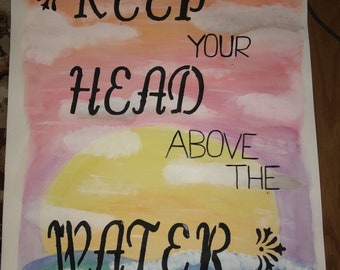 KEEP
YOUR
HEAD
ABOVE
THE
WATER